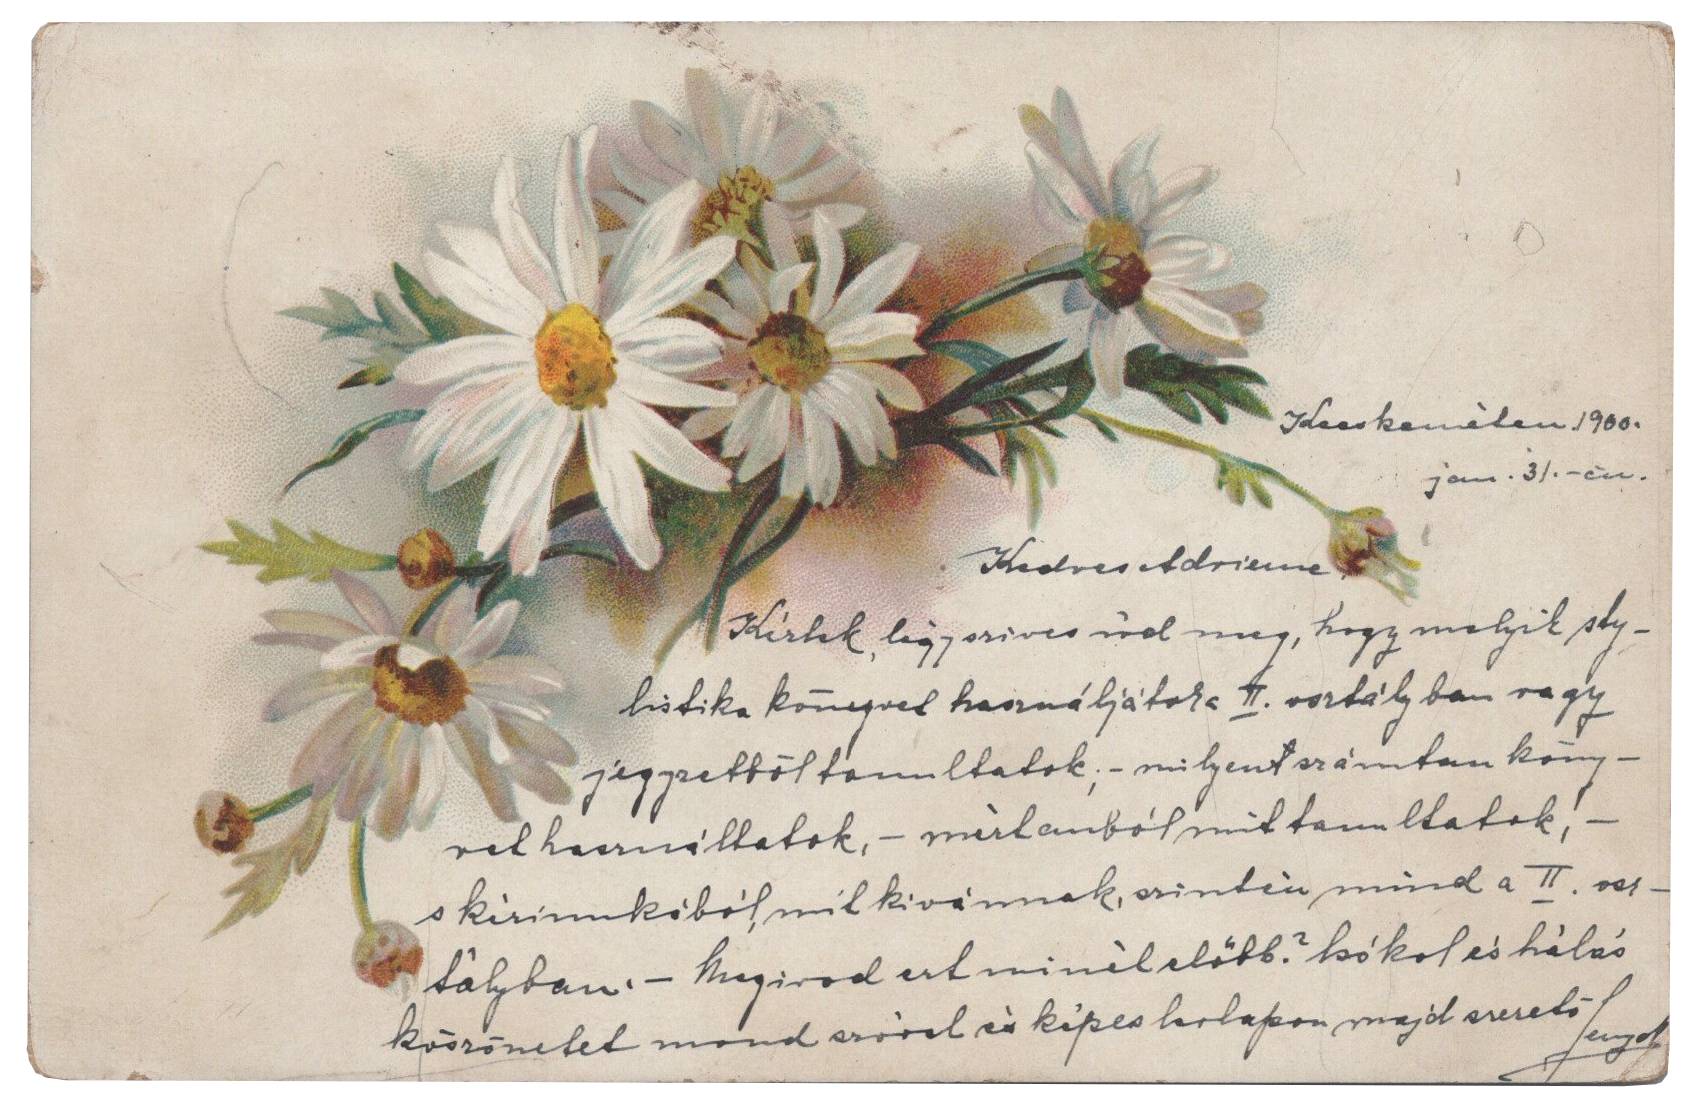 Kecskeméten 1900.
jan. 31.-én.
Kedves Adrienne!
Kérlek, légy szives ird meg, hogy melyik sty-
listika könyvet használjátok a II. osztályban vagy
jegyzetből tanultatok; - milyen számtan köny-
vet használtatok, - mértanból mit tanultatok, -
s kézimunkából, mit kivánnak, szintén mind a II. osz-
tályban. - Megirod ezt minél előbb? Csókol és hálás
köszönetet mond szóval és képes levlapon majd szerető